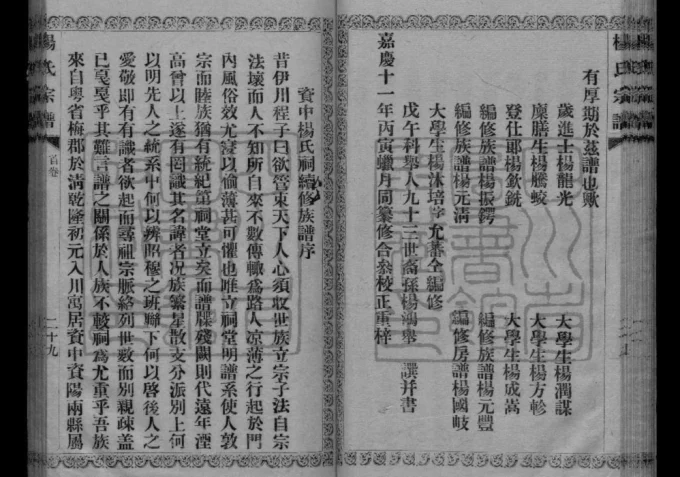 有厚期於茲譜也歟
歲進士楊龍光
大學生楊潤謀
廩膳生楊騰蛟
大學生楊方軫
登仕郎楊欽銑
大學生楊成嵩
編修族譜楊振鍔
編修族譜楊元豐
編修族譜楊元清
編修房譜楊國岐
大學生楊沐培字允蕃全編修
戊午科舉人九十三世裔孫楊鴻舉 譔并書
嘉慶十一年丙寅蠟月同纂修合叅校正重梓
資中楊氏祠續修族譜序
昔伊川程子曰欲管束天下人心須收世族立宗子法自宗
法壞而人不知所自來不數傳輒為路人凉薄之行起於門
內風俗效尤寖以偷薄甚可懼也唯立祠堂明譜系使人敦
宗而睦族猶有統紀第祠堂立矣而譜牒殘闕則代遠年湮
高曾以上遂有罔識其名諱者况族繁星散支分派別上何
以明先人之統系中何以辨昭穆之班聯下何以啓後人之
愛敬即有有識者欲起而尋祖宗脈絡列世數而別親疎蓋
已戛戛乎其難言譜之關係於人族不較祠為尤重乎吾族
來自粵省梅郡於淸乾隆初元入川寓居資中資陽兩縣屬
楊氏宗譜
首卷
二十九
楊氏宗譜